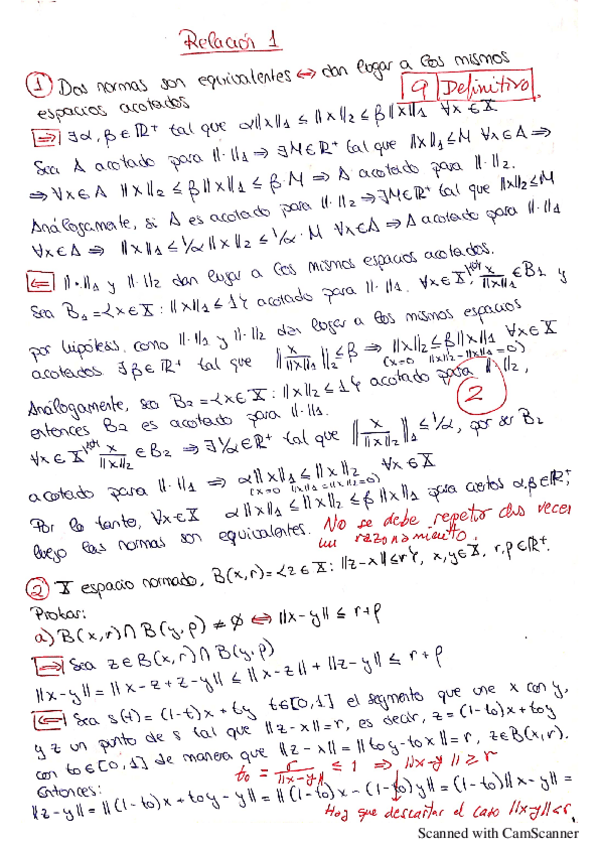 Relación 1
① Dos normas son equivalentes ⇔ dan lugar a los mismos
espacios acotados
9 Definitivo
⇒ ∃α, β ∈ ℝ⁺ tal que α‖x‖₁ ≤ ‖x‖₂ ≤ β‖x‖₁ ∀x ∈ X
Sea A acotado para ‖·‖₁ ⇒ ∃M∈ℝ⁺ tal que ‖x‖₁≤M ∀x∈A ⇒
⇒ ∀x∈A ‖x‖₂ ≤ β‖x‖₁ ≤ β·M ⇒ A acotado para ‖·‖₂.
Análogamente, si A es acotado para ‖·‖₂ ⇒ ∃M∈ℝ⁺ tal que ‖x‖₂≤M
∀x∈A ⇒ ‖x‖₁ ≤ 1/α‖x‖₂ ≤ 1/α·M ∀x∈A ⇒ A acotado para ‖·‖₁
⇐ ‖·‖₁ y ‖·‖₂ dan lugar a los mismos espacios acotados.
Sea B₁={x∈X: ‖x‖₁≤1} acotado para ‖·‖₁. ∀x∈X\{0}, x/‖x‖₁ ∈B₁ y
por hipótesis, como ‖·‖₁ y ‖·‖₂ dan lugar a los mismos espacios
acotados ∃β∈ℝ⁺ tal que ‖x/‖x‖₁‖₂ ≤β ⇒ ‖x‖₂≤β‖x‖₁ ∀x∈X
(x=0 ‖x‖₂=‖x‖₁=0)
Análogamente, sea B₂={x∈X: ‖x‖₂≤1} acotado para ‖·‖₂,
2
entonces B₂ es acotado para ‖·‖₁.
∀x∈X\{0} x/‖x‖₂ ∈B₂ ⇒ ∃1/α∈ℝ⁺ tal que ‖x/‖x‖₂‖₁ ≤1/α, por ser B₂
acotado para ‖·‖₁ ⇒ α‖x‖₁≤‖x‖₂ ∀x∈X
(x=0 ‖x‖₁=‖x‖₂=0)
Por lo tanto, ∀x∈X α‖x‖₁≤‖x‖₂≤β‖x‖₁ para ciertos α,β∈ℝ⁺,
luego las normas son equivalentes. No se debe repetir dos veces
un razonamiento.
② X espacio normado, B(x,r)={z∈X: ‖z-x‖≤r}, x,y∈X, r,ρ∈ℝ⁺.
Probar:
a) B(x,r)∩B(y,ρ) ≠ ∅ ⇔ ‖x-y‖ ≤ r+ρ
⇒ Sea z∈B(x,r)∩B(y,ρ)
‖x-y‖=‖x-z+z-y‖ ≤ ‖x-z‖+‖z-y‖ ≤ r+ρ
⇐ Sea s(t)=(1-t)x+ty t∈[0,1] el segmento que une x con y,
y z un punto de s tal que ‖z-x‖=r, es decir, z=(1-t₀)x+t₀y
con t₀∈[0,1] de manera que ‖z-x‖=‖t₀y-t₀x‖=r, z∈B(x,r).
t₀ = r/‖x-y‖ ≤ 1 ⇒ ‖x-y‖≥r
Entonces:
‖z-y‖=‖(1-t₀)x+t₀y-y‖=‖(1-t₀)x-(1-t₀)y‖=(1-t₀)‖x-y‖=
Hay que descartar el caso ‖x-y‖<r
Scanned with CamScanner